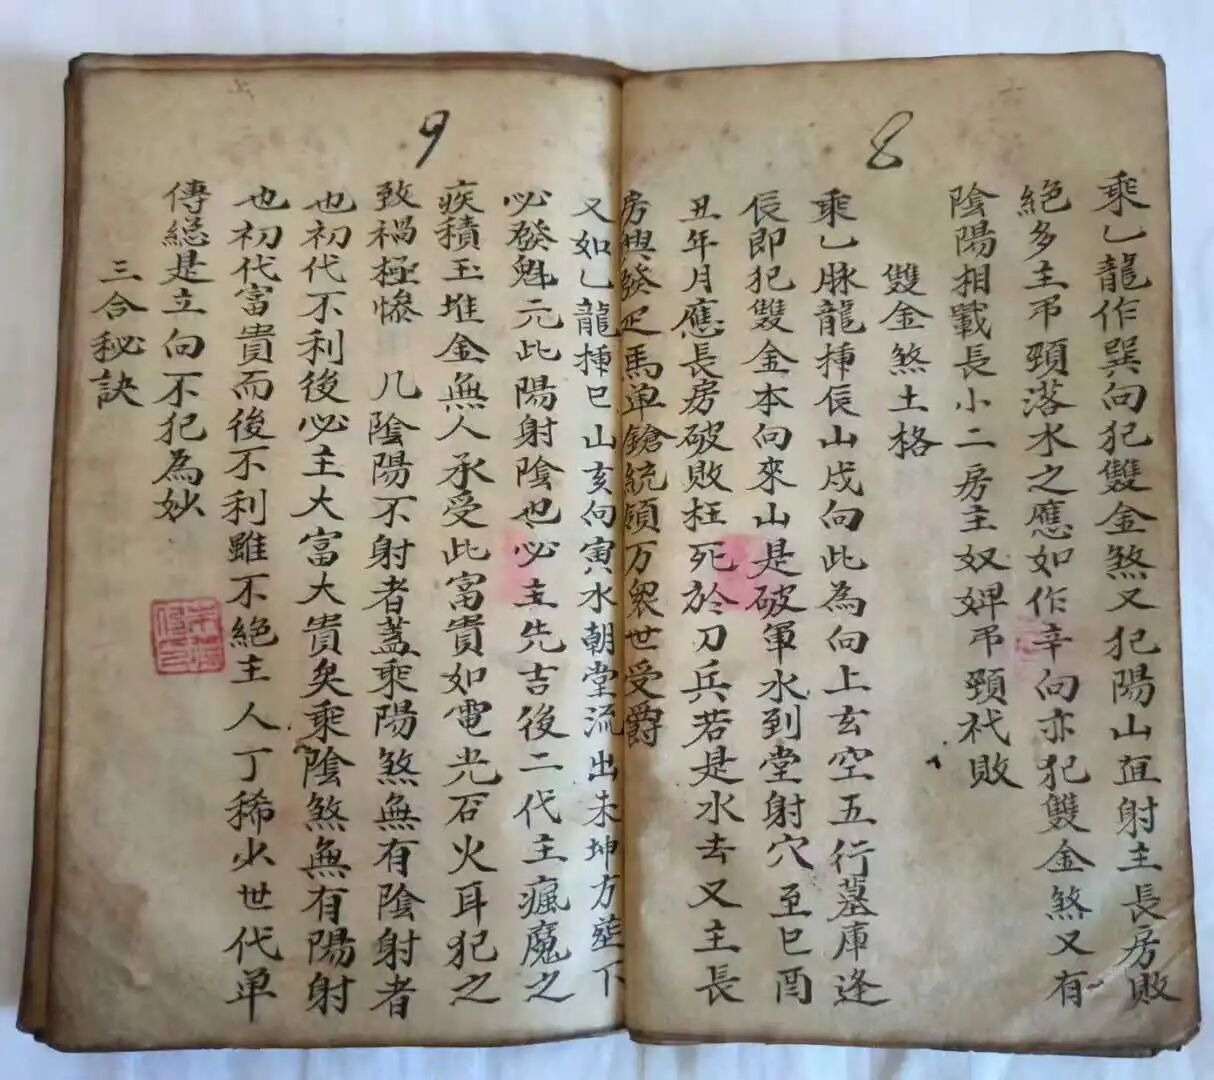 8
乘乙龍作巽向犯雙金煞又犯陽山直射主長房敗
絕多主吊頸落水之應如作辛向亦犯雙金煞又有
陰陽相戰長小二房主奴婢吊頸衰敗
雙金煞土格
乘乙脉龍揷辰山戍向此為向上玄空五行墓庫逢
辰即犯雙金本向來山是破軍水到堂射穴至巳酉
丑年月應長房破敗枉死於刀兵若是水去又主長
房興發疋馬单鎗統領万衆世受爵
9
又如乙龍揷巳山亥向寅水朝堂流出未坤方塟下
必發魁元此陽射陰也必主先吉後二代主瘋魔之
疾積玉堆金無人承受此富貴如電光石火耳犯之
致禍極惨 凡陰陽不射者蓋乘陽煞無有陰射者
也初代不利後必主大富大貴矣乘陰煞無有陽射
也初代富貴而後不利雖不絕主人丁稀少世代单
傳總是立向不犯為妙
三合秘訣